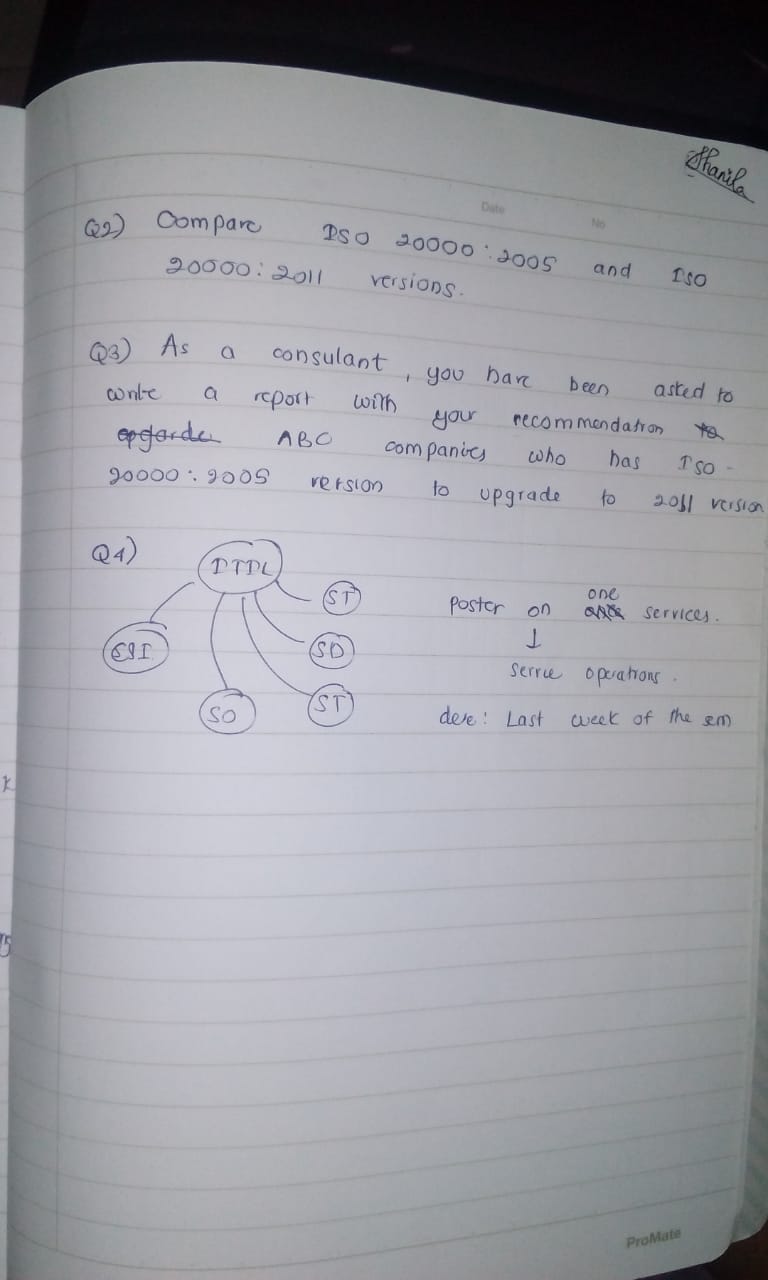 Shanila
Date No
Q2) Compare ISO 20000:2005 and ISO
20000:2011 versions.
Q3) As a consulant, you have been asked to
write a report with your recommendation to
ABC companies who has ISO -
20000:2005 version to upgrade to 2011 version
Q4) ITIL
ST
Poster on one services.
CSI
SD
Service operations.
SO
ST
Last week of the sem
ProMate